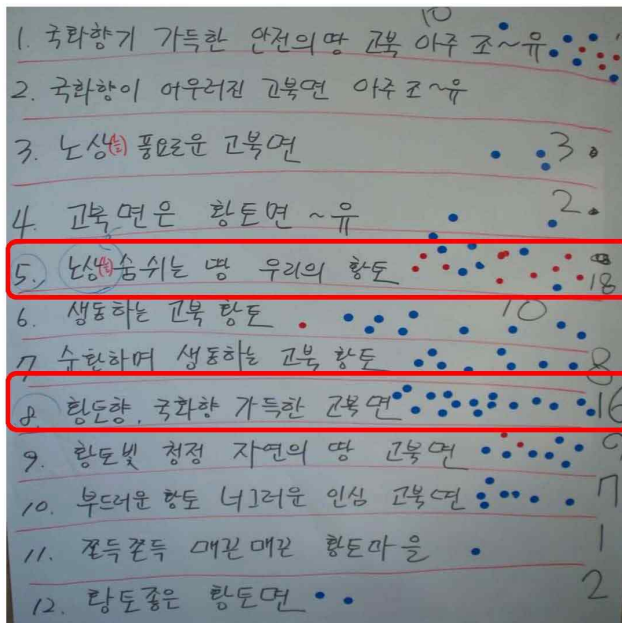 10
1. 국화향기 가득한 안전의땅 고북 아주 조~유
2. 국화향이 어우러진 고북면 아주 조~유
3. 노상 풍요로운 고북면 3
4. 고북면은 황토면 ~유 2
5. 노상 숨쉬는 땅 우리의 황토 18
6. 생동하는 고북 황토 10
7 순환하며 생동하는 고북 황토 8
8. 황토향, 국화향 가득한 고북면 16
9. 황토빛 청정 자연의 땅 고북면 9
10. 부드러운 황토 너그러운 인심 고북면 7
11. 쫀득쫀득 매끈매끈 황토마을 1
12. 황토좋은 황토면 2